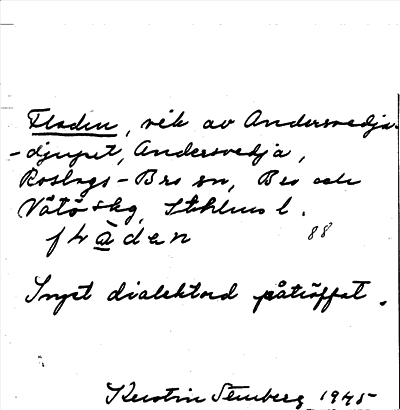 Fladen, vik av Andersvedja-
-djupet, Andersvedja,
Roslags-Bro sn, Bro och
Vätö skg, Sthlms l.
flàden 88
Inget dialektord påträffat.
Kerstin Stenberg 1945